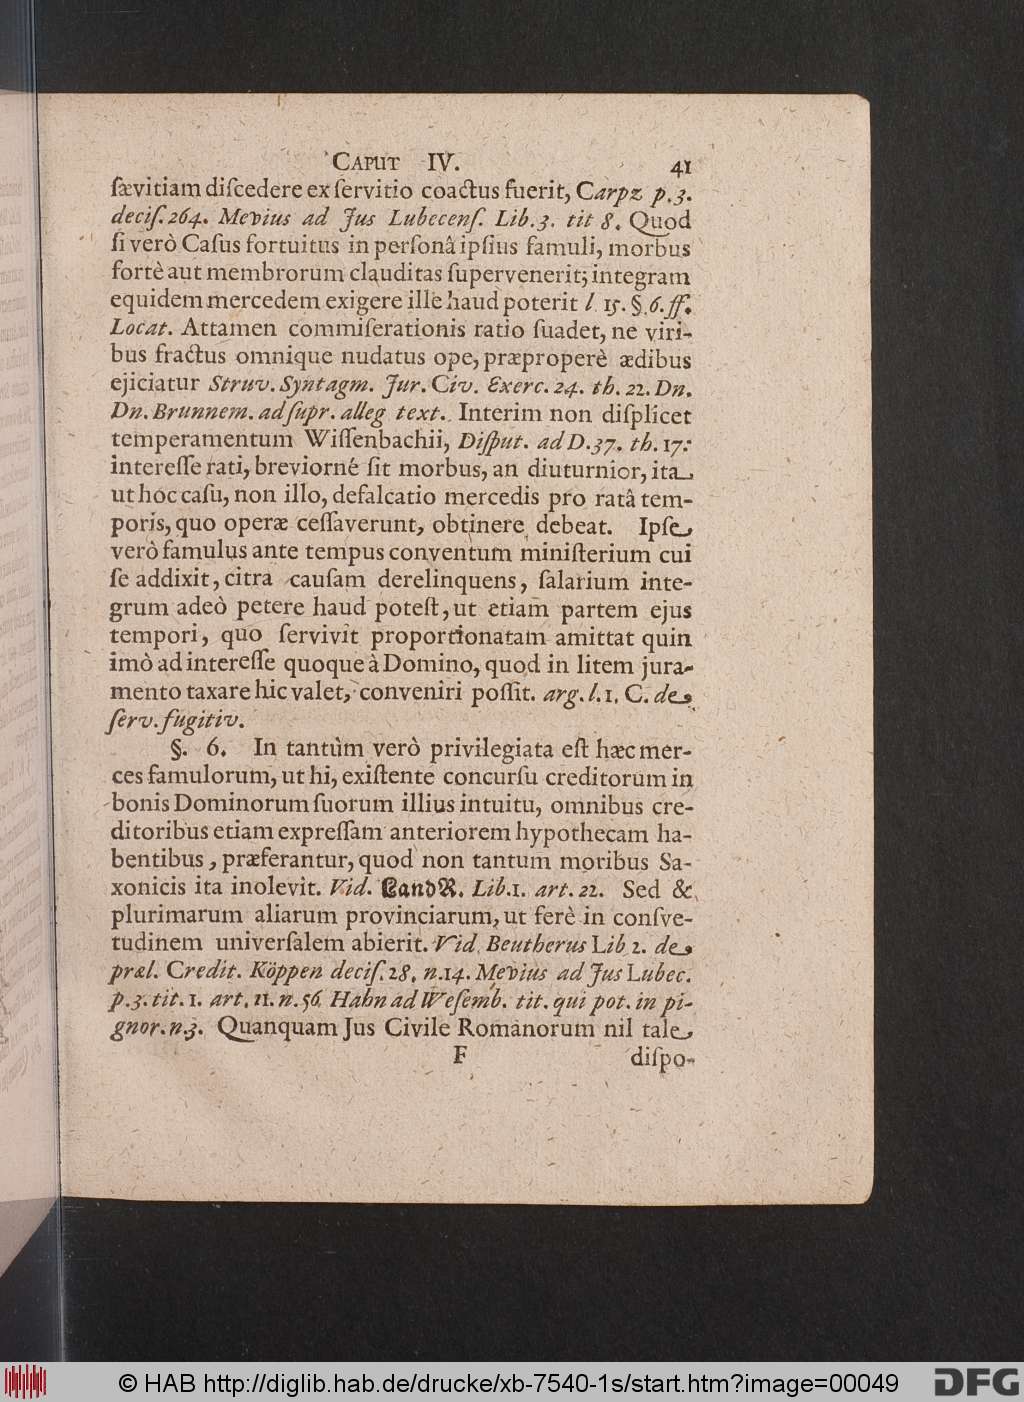 CAPUT IV. 41
ſævitiam diſcedere ex ſervitio coactus fuerit, Carpz p.3.
deciſ. 264. Mevius ad Jus Lubecenſ. Lib. 3. tit 8. Quod
ſi verò Caſus fortuitus in perſonâ ipſius famuli, morbus
fortè aut membrorum clauditas ſupervenerit; integram
equidem mercedem exigere ille haud poterit l 15. §. 6. ff.
Locat. Attamen commiſerationis ratio ſuadet, ne viri-
bus fractus omnique nudatus ope, præproperè ædibus
ejiciatur Struv. Syntagm. Jur. Civ. Exerc. 24. th. 22. Dn.
Dn. Brunnem. ad ſupr. alleg text. Interim non diſplicet
temperamentum Wiſſenbachii, Diſput. ad D. 37. th. 17:
intereſſe rati, breviorné ſit morbus, an diuturnior, ita
ut hoc caſu, non illo, defalcatio mercedis pro ratâ tem-
poris, quo operæ ceſſaverunt, obtinere debeat. Ipſe
verò famulus ante tempus conventum miniſterium cui
ſe addixit, citra cauſam derelinquens, ſalarium inte-
grum adeò petere haud poteſt, ut etiam partem ejus
tempori, quo ſervivit proportionatam amittat quin
imò ad intereſſe quoque à Domino, quod in litem jura-
mento taxare hic valet, conveniri poſſit. arg. l. 1. C. de
ſerv. fugitiv.
§. 6. In tantùm verò privilegiata eſt hæc mer-
ces famulorum, ut hi, exiſtente concurſu creditorum in
bonis Dominorum ſuorum illius intuitu, omnibus cre-
ditoribus etiam expreſſam anteriorem hypothecam ha-
bentibus, præferantur, quod non tantum moribus Sa-
xonicis ita inolevit. Vid. LandR. Lib. 1. art. 22. Sed &
plurimarum aliarum provinciarum, ut ferè in conſve-
tudinem univerſalem abierit. Vid. Beutherus Lib 2. de
præl. Credit. Köppen deciſ. 28. n. 14. Mevius ad Jus Lubec.
p. 3. tit. 1. art. 11. n. 56 Hahn ad Weſemb. tit. qui pot. in pi-
gnor. n. 3. Quanquam Jus Civile Romanorum nil tale
F diſpo-
© HAB http://diglib.hab.de/drucke/xb-7540-1s/start.htm?image=00049
DFG